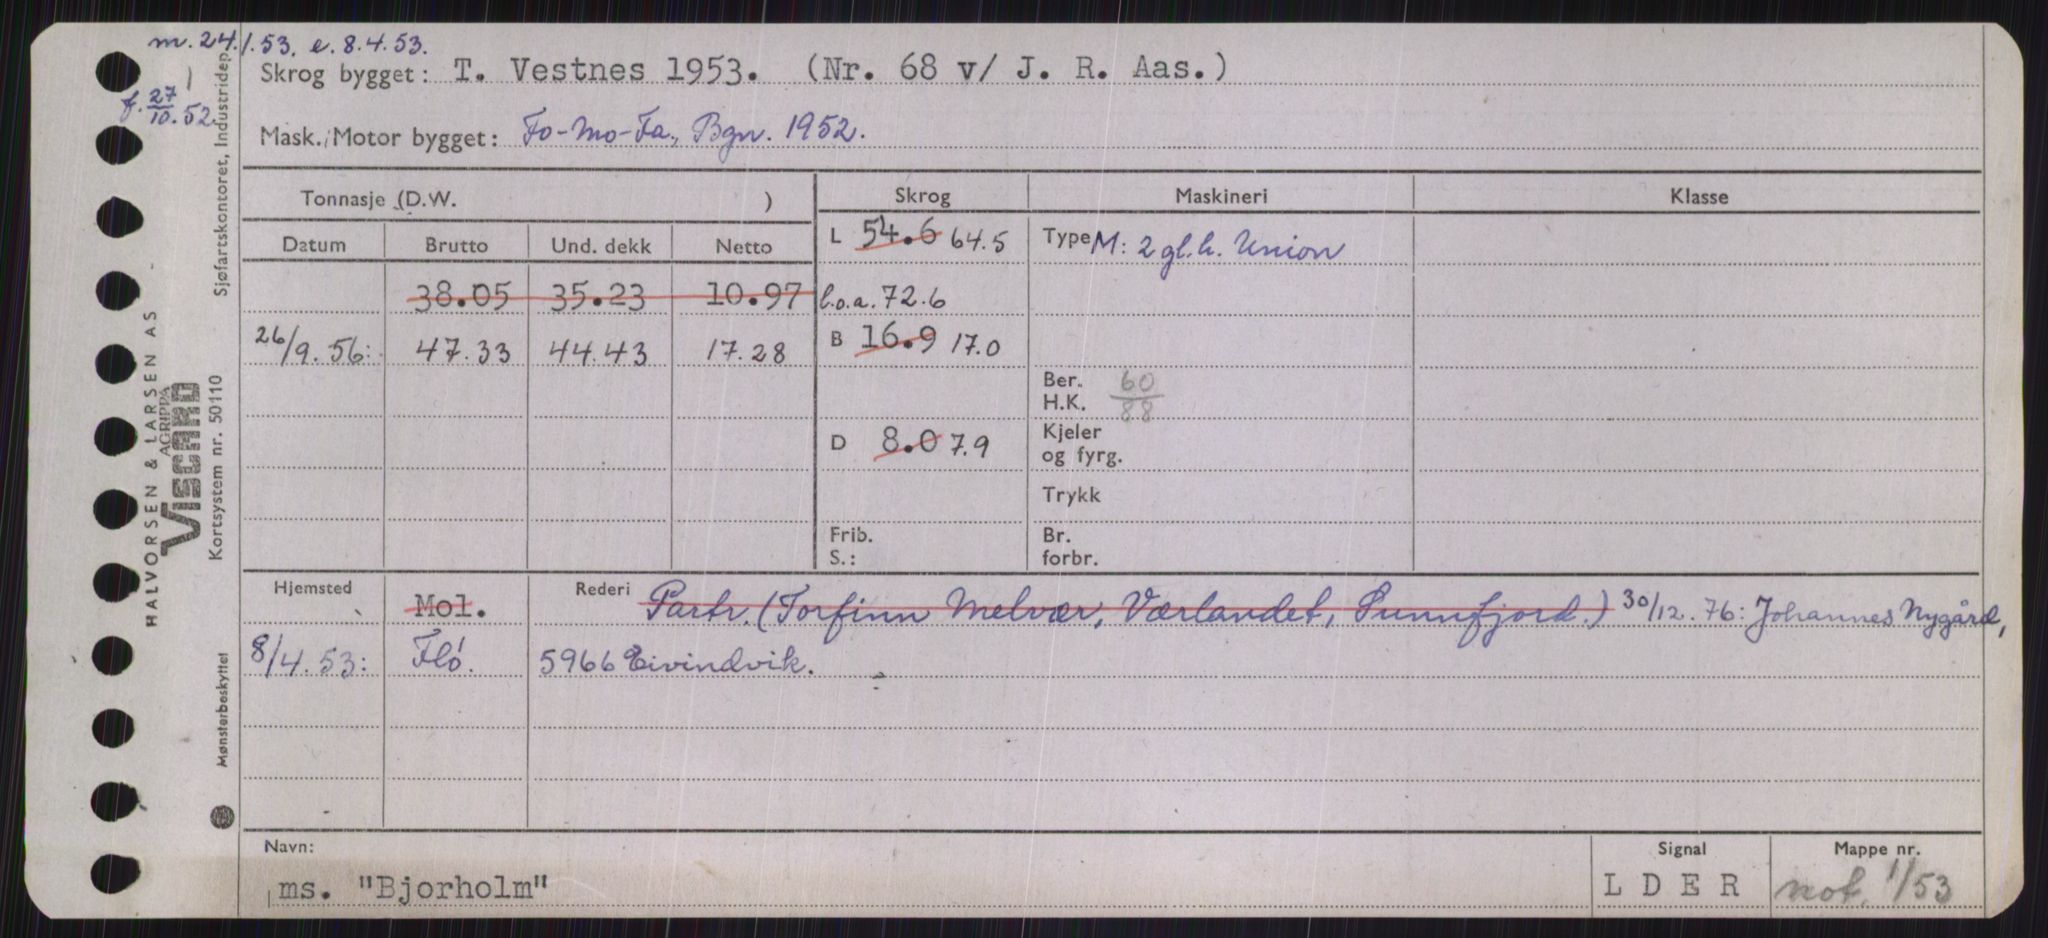 m. 24.1.53. e. 8.4.53.
f. 27/10.52.
Skrog bygget: T. Vestnes 1953. (Nr. 68 v/ J. R. Aas.)
Mask./Motor bygget: Fo-Mo-Fa., Bgn. 1952.
Tonnasje (D.W. ) Skrog Maskineri Klasse
Datum Brutto Und. dekk Netto L 54.6 64.5 Type M: 2 gl.h. Union
38.05 35.23 10.97 l.o.a. 72.6
26/9.56: 47.33 44.43 17.28 B 16.9 17.0
Ber. H.K. 60/88
D 8.0 7.9 Kjeler og fyrg.
Trykk
Frib. S.: Br. forbr.
Hjemsted Mol. Rederi Partr. (Torfinn Melvær, Værlandet, Sunnfjord.) 30/12.76: Johannes Nygård,
8/4.53: Flö. 5966 Eivindvik.
Navn: Signal Mappe nr.
ms. "Bjorholm" L D E R not. 1/53
HALVORSEN & LARSEN AS
AGRIPPA
VISCARD
Kortsystem nr. 50110
Sjøfartskontoret, Industridep.
Mønsterbeskyttet